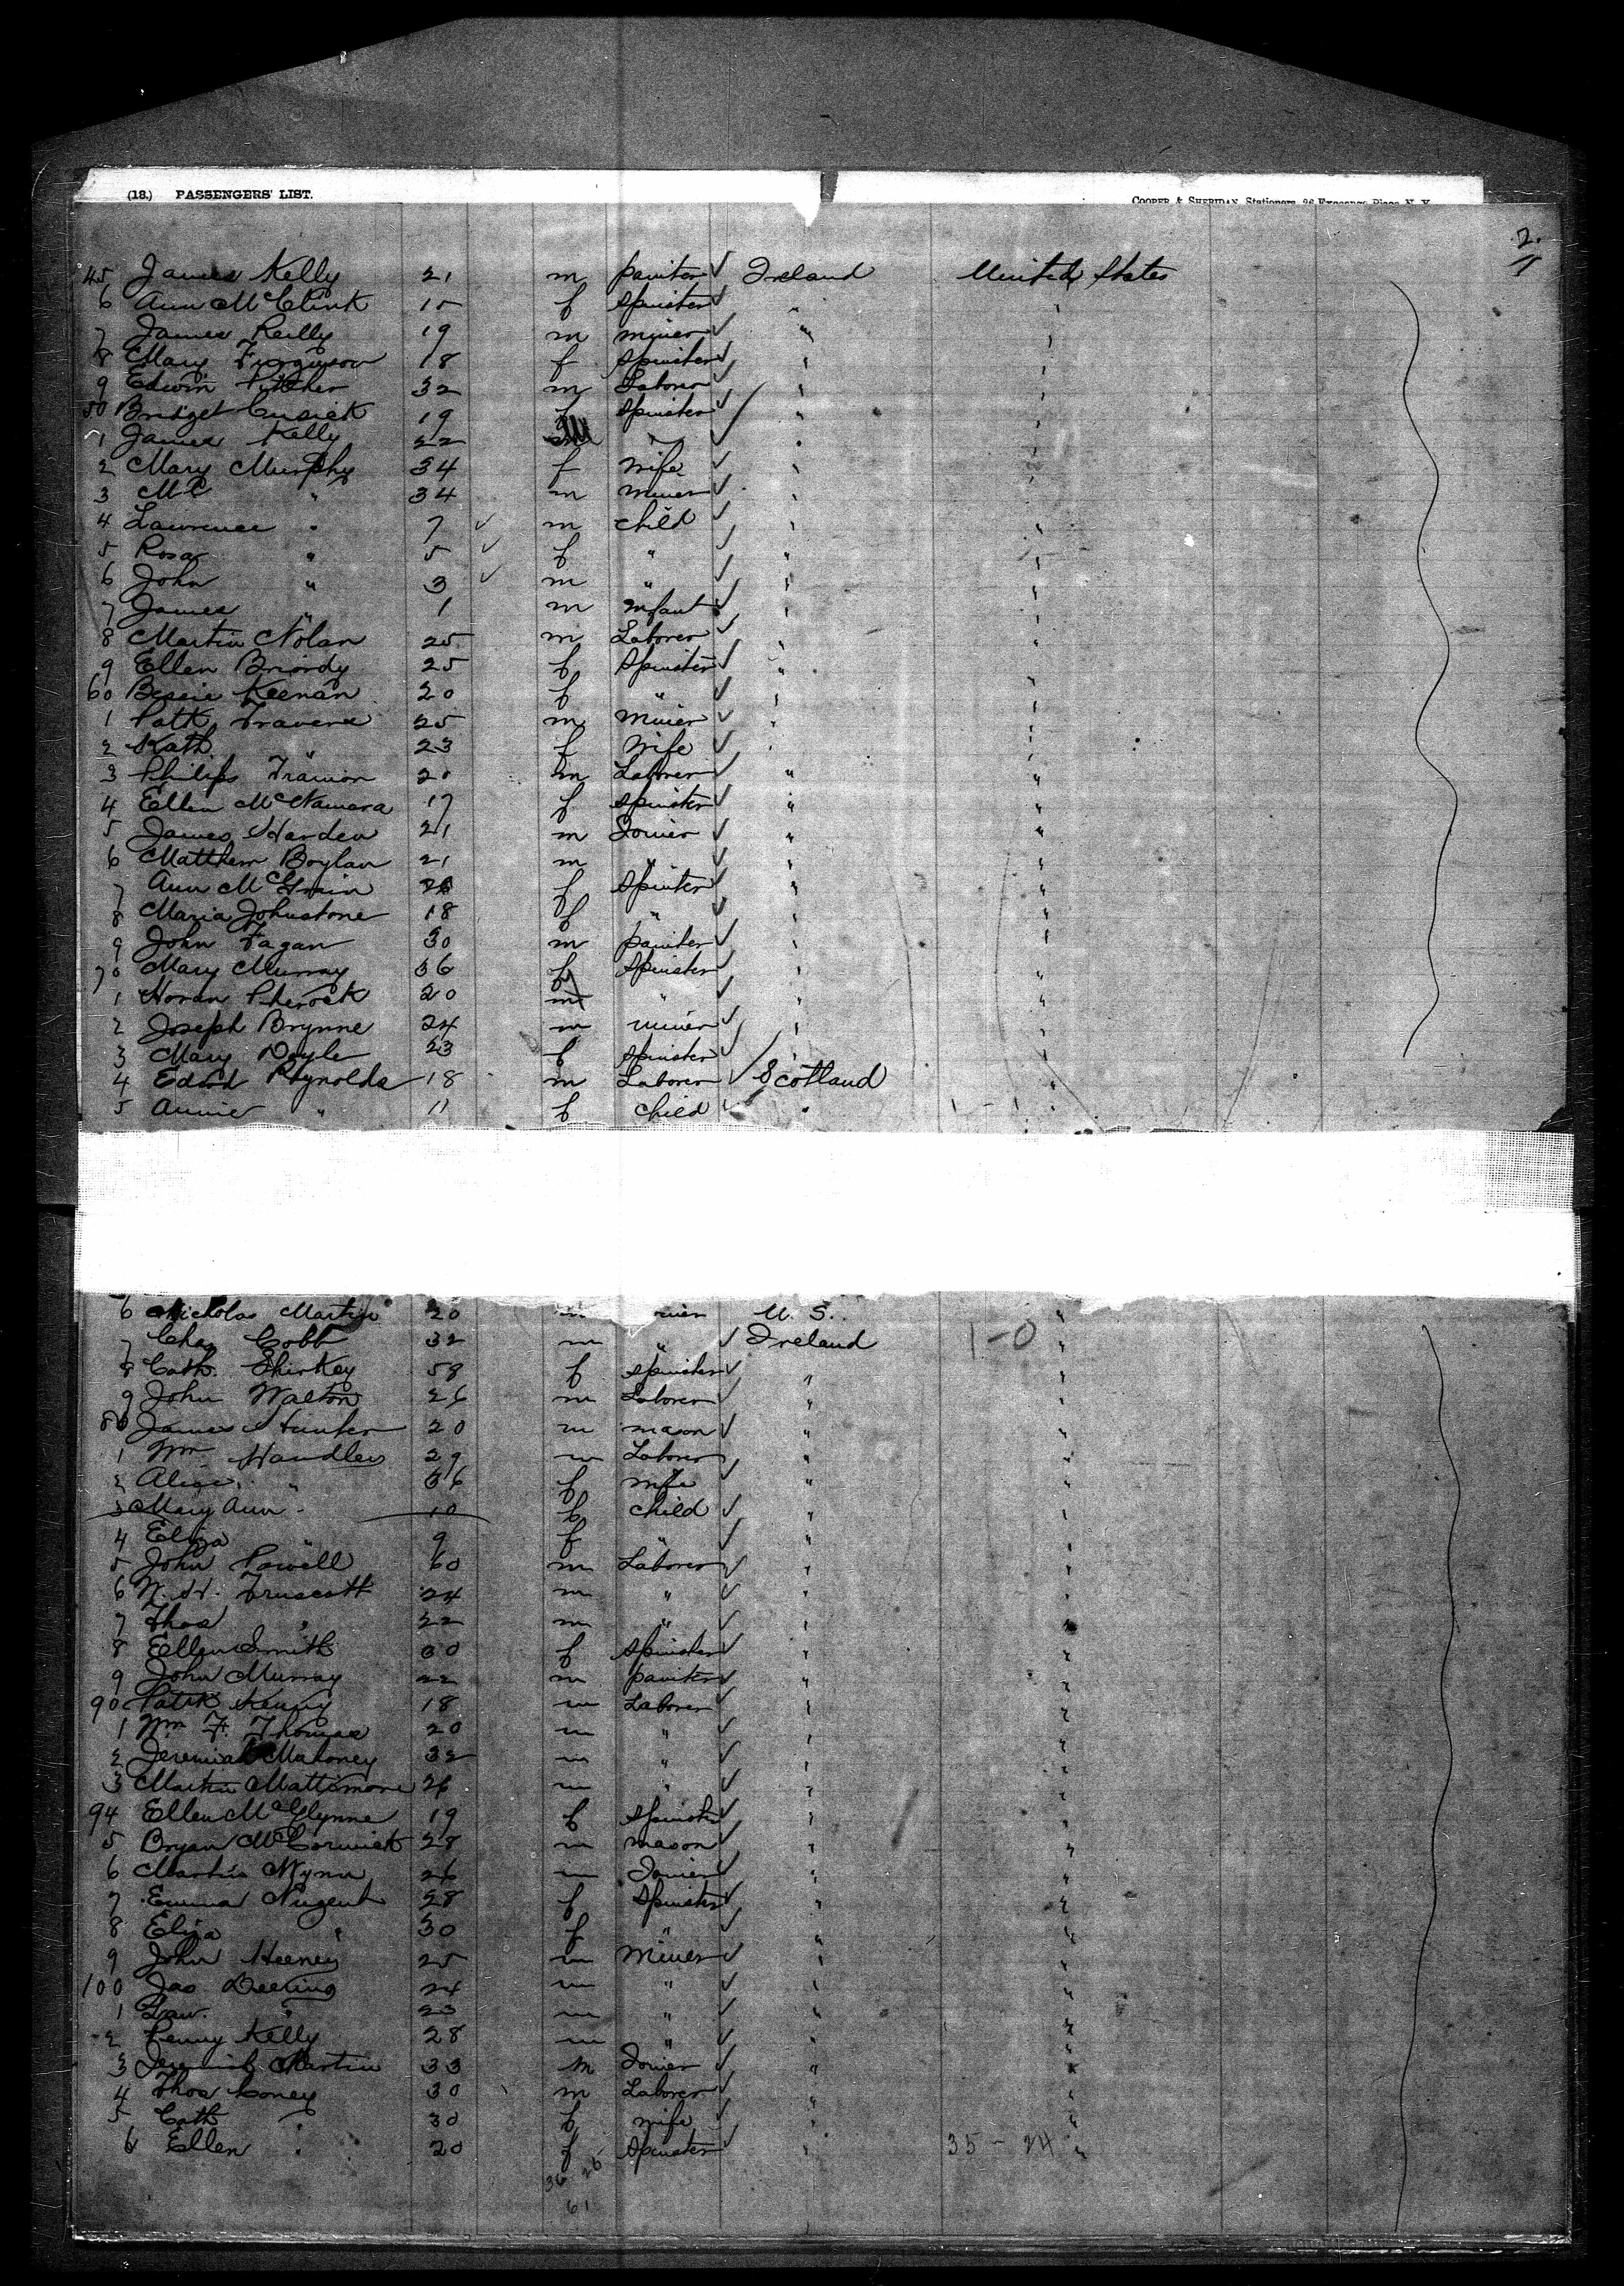 (18.) PASSENGERS' LIST.
COOPER & SHERIDAN, Stationers, 26 Exchange Place, N. Y.
2.
45 James Kelly 21 m painter Ireland United States
6 Ann McClink 15 f spinster "
7 James Reilly 19 m miner " "
8 Mary Furguson 18 f spinster " "
9 Edwin 32 m Laborer " "
50 Bridget Cusick 19 f spinster " "
1 James Kelly 22 m " " "
2 Mary Murphy 34 f wife " "
3 " 34 m miner " "
4 Lawrence " 7 m child " "
5 Rosa " 5 f " " "
6 John " 3 m " " "
7 James " 1 m infant " "
8 Martin Nolan 25 m Laborer " "
9 Ellen Briordy 25 f Spinster " "
60 Bessie Keenan 20 f " " "
1 Patk Travers 25 m Miner " "
2 Kath " 23 f Wife " "
3 Philip 20 m Laborer " "
4 Ellen McNamara 17 f spinster " "
5 James Harden 21 m Joiner " "
6 Matthew Boylan 21 m " " "
7 Ann 26 f Spinster " "
8 Maria Johnstone 18 f " " "
9 John Fagan 30 m painter " "
70 Mary Murray 36 f Spinster " "
1 20 " " "
2 Joseph Brynne 24 m miner " "
3 Mary Doyle 23 f spinster " "
4 Edwd Reynolds 18 m Laborer Scotland "
5 Annie " 11 f child " "
6 Nicholas Martin 20 m U. S. "
7 Chas Cobb 32 m " Ireland 1-0 "
8 Cath. Shirkey 58 f spinster " "
9 John Walton 26 m Laborer " "
80 James Hunter 20 m mason " "
1 Wm Handley 29 m Laborer " "
2 Alice " 36 f wife " "
3 Mary Ann 10 f child " "
4 Eliza " 9 f " " "
5 John Powell 60 m Laborer " "
6 W. H. Truscott 24 m " " "
7 Thos " 22 m " " "
8 Ellen Smith 30 f spinster " "
9 John Murray 22 m painter " "
90 Patk Kenny 18 m Laborer " "
1 Wm F. Thomas 20 m " " "
2 Jeremiah Mahoney 32 m " " "
3 Martin Mattimore 26 m " " "
94 Ellen McGlynne 19 f Spinster " "
5 Bryan McCormick 28 m mason " "
6 Martin Wynn 26 m Joiner " "
7 Emma Nugent 28 f Spinster " "
8 Eliza " 30 f " " "
9 John Heeney 25 m Miner " "
100 Jas Deering 24 m " " "
1 Law. " 23 m " " "
2 Kelly 28 m " " "
3 Jeremiah Martin 33 m Joiner " "
4 Thos Coney 30 m Laborer " "
5 Cath " 30 f wife " "
6 Ellen " 20 f Spinster " 35 - 24 "
36 26
61